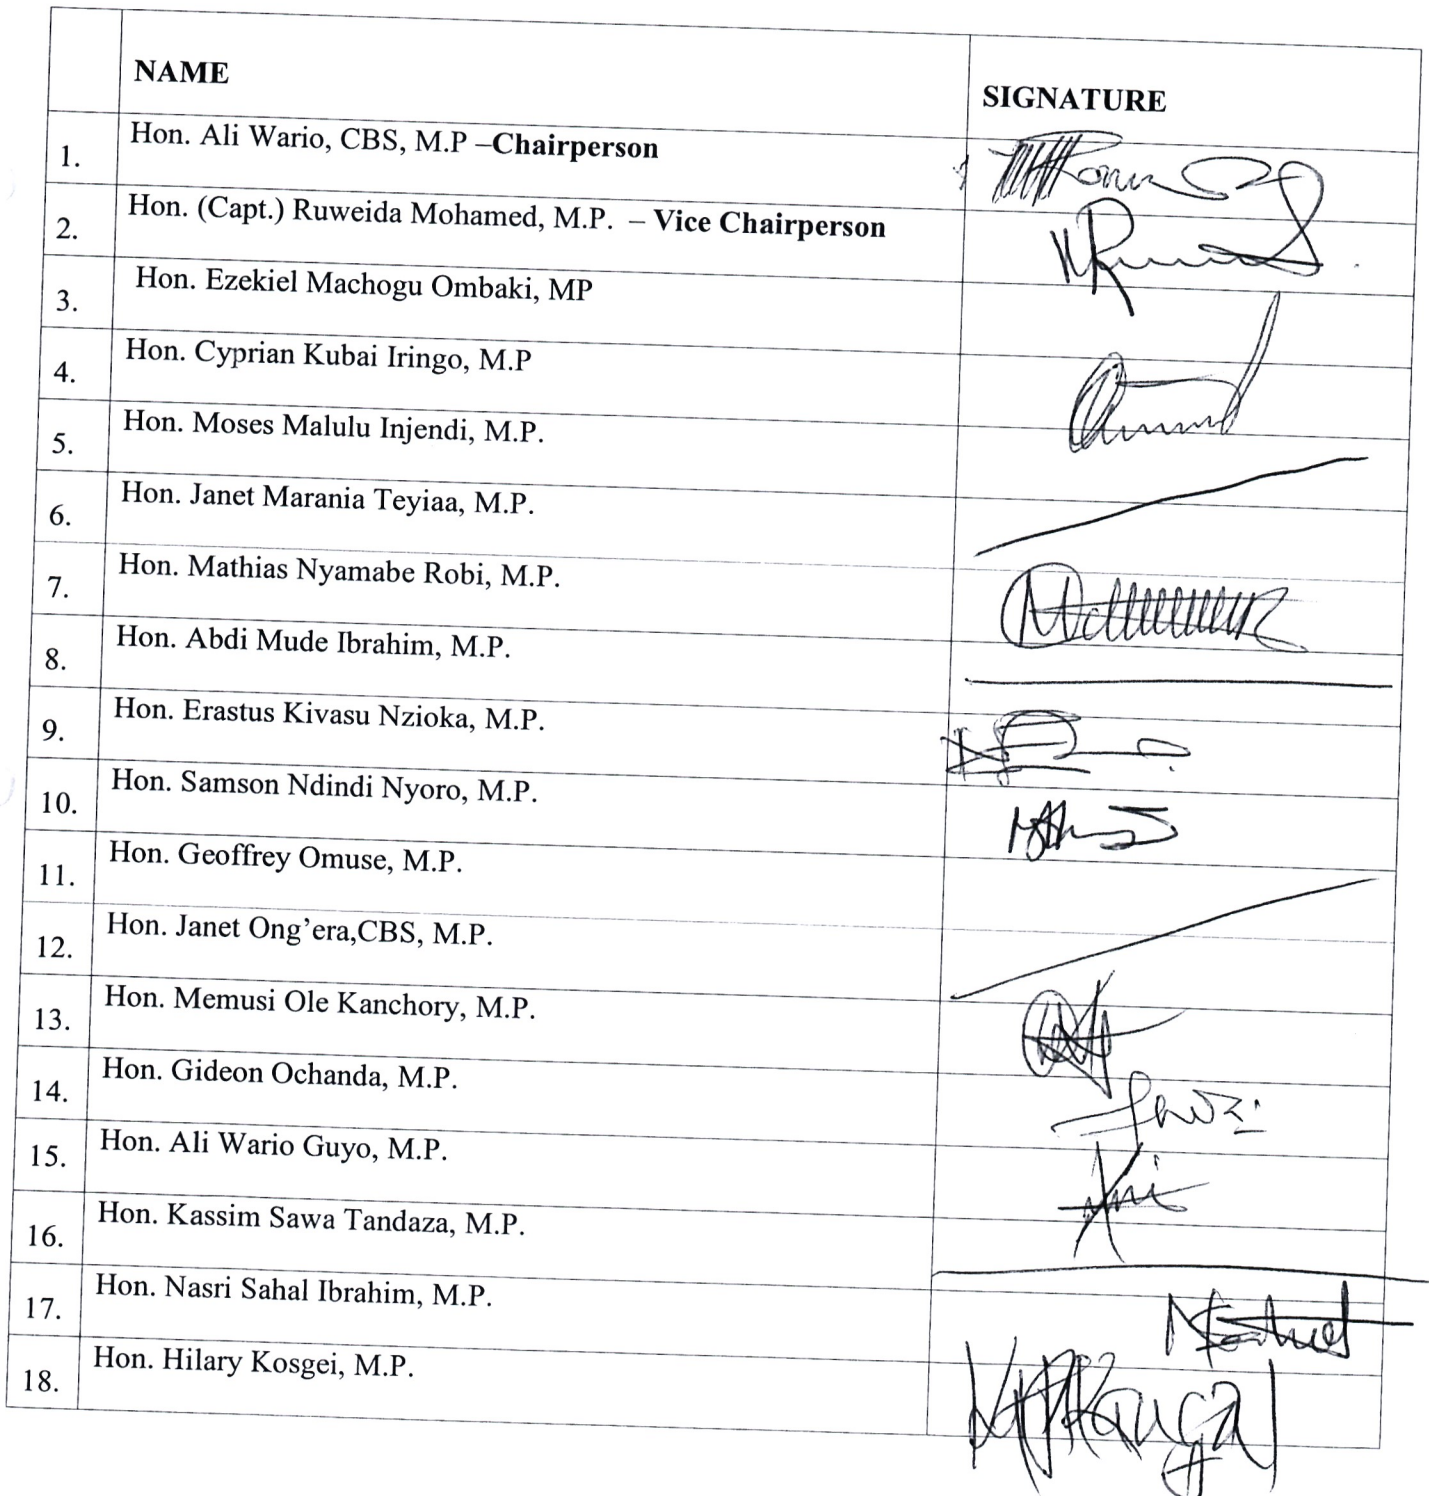 NAME
SIGNATURE
1. Hon. Ali Wario, CBS, M.P –Chairperson
2. Hon. (Capt.) Ruweida Mohamed, M.P. – Vice Chairperson
3. Hon. Ezekiel Machogu Ombaki, MP
4. Hon. Cyprian Kubai Iringo, M.P
5. Hon. Moses Malulu Injendi, M.P.
6. Hon. Janet Marania Teyiaa, M.P.
7. Hon. Mathias Nyamabe Robi, M.P.
8. Hon. Abdi Mude Ibrahim, M.P.
9. Hon. Erastus Kivasu Nzioka, M.P.
10. Hon. Samson Ndindi Nyoro, M.P.
11. Hon. Geoffrey Omuse, M.P.
12. Hon. Janet Ong’era,CBS, M.P.
13. Hon. Memusi Ole Kanchory, M.P.
14. Hon. Gideon Ochanda, M.P.
15. Hon. Ali Wario Guyo, M.P.
16. Hon. Kassim Sawa Tandaza, M.P.
17. Hon. Nasri Sahal Ibrahim, M.P.
18. Hon. Hilary Kosgei, M.P.